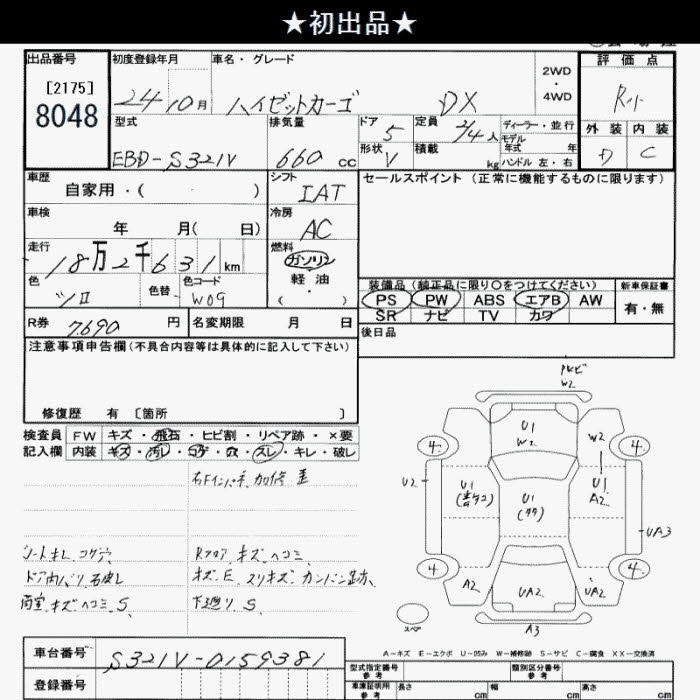 ★初出品★
出品番号
[2175]
8048
初度登録年月
24 10月
車名・グレード
ハイゼットカーゴ DX
2WD
・
4WD
評価点
R小
外装 内装
D C
型式
EBD-S321V
排気量
660 cc
ドア
5
形状
V
定員
2/4人
積載
kg
ディーラー・並行
モデル
年式 年
ハンドル 左・右
車歴
自家用・( )
シフト
IAT
セールスポイント (正常に機能するものに限ります)
車検
年 月( 日)
冷房
AC
走行
18万2千631km
燃料
ガソリン
・
軽油
( )
色
シロ
色替
色コード
W09
装備品 (純正品に限り○をつけてください)
PS PW ABS エアB AW
SR ナビ TV カワ
新車保証書
有・無
R券 7,690円
名変期限 月 日
後日品
注意事項申告欄(不具合内容等は具体的に記入して下さい)
修復歴 有〔箇所 〕
検査員
記入欄
FW キズ・飛石・ヒビ割・リペア跡・×要
内装 キズ・汚レ・コゲ・穴・スレ・キレ・破レ
右Fインパネ 加修 歪
シートキレ コゲ穴
Rフロア キズ ヘコミ
キズ、E、スリキズ カンバン跡
荷室 キズ ヘコミ S
下廻り S
W2
U1
W2
W2
4
4
U2
U1
U1
U1
A2
UA3
4
4
A2
UA2
UA2
A3
スペア
A-キズ E-エクボ U-凹み W-補修跡 S-サビ C-腐食 XX-交換済
車台番号
S321V-0159381
登録番号
型式指定番号
参考
類別区分番号
参考
車庫証明用
参考
長さ cm
幅 cm
高さ cm